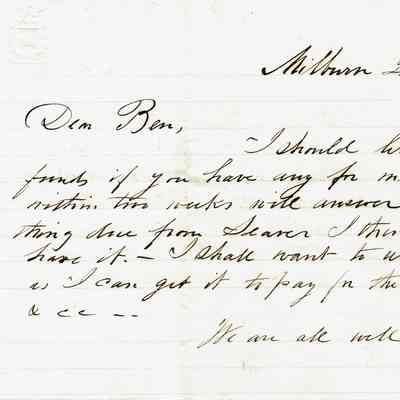 Milburn
Dear Ben,
I should
funds if you have any for
within two weeks will answer
thing due from Seaver I
have it. – I shall want to
as I can get it to pay for the
& c c – –
We are all well